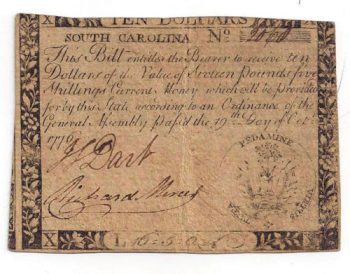 X TEN DOLLARS X
SOUTH CAROLINA No
This Bill entitles the Bearer to receive ten
Dollars or the Value of Sixteen pounds five
Shillings Current Money which will be provided
for by this State according to an Ordinance of the
General Assembly Pass'd the 19th Day of Oct.r
1776
Dart
FEDAMINE
Richard
VIRTUS
X X